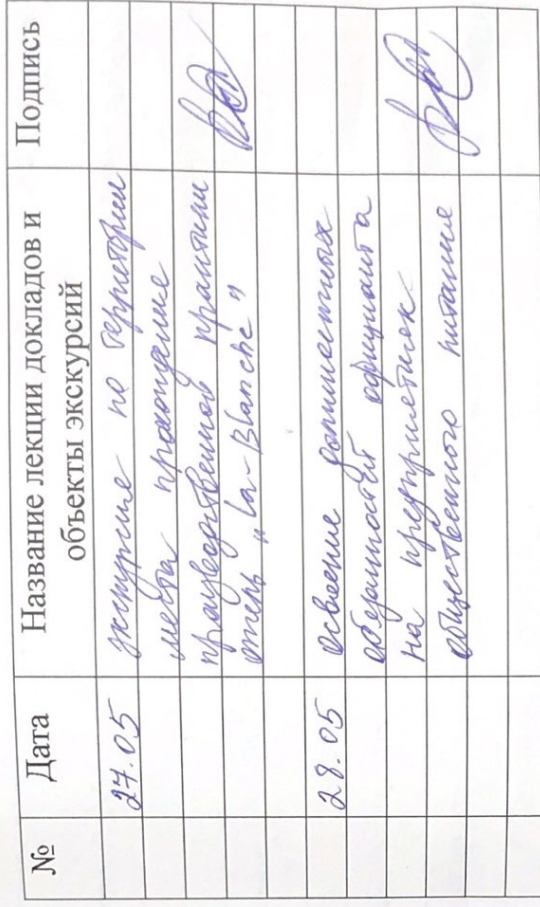 № Дата Название лекции докладов и объекты экскурсий Подпись
27.05 экскурсие по территории
места прохождение
производственной практики
отель „La-Blanche"
28.05 освоение должностных
обязаностей официанта
на предприятиях
общественного питание